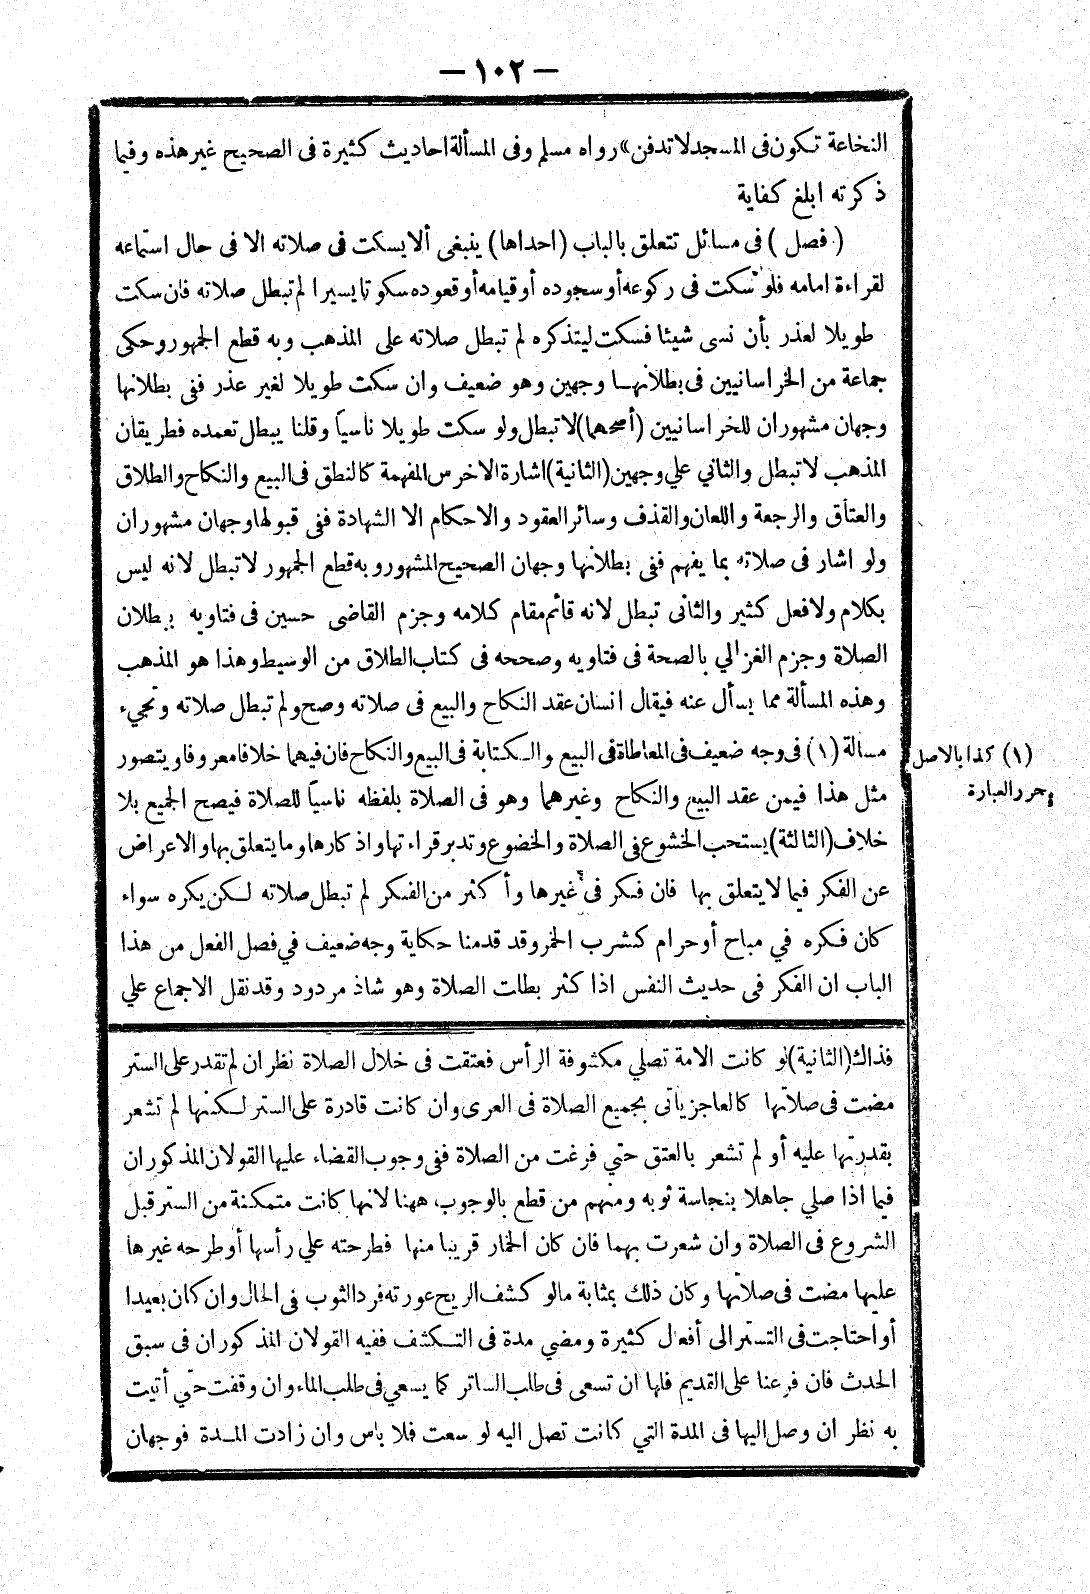 — ١٠٢ —
النخاعة تكون فى المسجد لا تدفن» رواه مسلم وفى المسألة احاديث كثيرة فى الصحيح غير هذه وفيما
ذكرته ابلغ كفاية
( فصل ) فى مسائل تتعلق بالباب (احداها) ينبغى ألا يسكت فى صلاته الا فى حال استماعه
لقراءة امامه فلو سكت فى ركوعه أو سجوده أو قيامه أو قعوده سكوتا يسيرا لم تبطل صلاته فان سكت
طويلا لعذر بأن نسى شيئا فسكت ليتذكره لم تبطل صلاته على المذهب وبه قطع الجمهور وحكى
جماعة من الخراسانيين فى بطلانها وجهين وهو ضعيف وان سكت طويلا لغير عذر ففى بطلانها
وجهان مشهوران للخراسانيين (أصحهما) لا تبطل ولو سكت طويلا ناسياً وقلنا يبطل تعمده فطريقان
المذهب لا تبطل والثاني علي وجهين (الثانية) اشارة الاخرس المفهمة كالنطق فى البيع والنكاح والطلاق
والعتاق والرجعة واللعان والقذف وسائر العقود والاحكام الا الشهادة ففى قبولها وجهان مشهوران
ولو اشار فى صلاته بما يفهم ففى بطلانها وجهان الصحيح المشهور وبه قطع الجمهور لا تبطل لانه ليس
بكلام ولا فعل كثير والثانى تبطل لانه قائم مقام كلامه وجزم القاضى حسين فى فتاويه ببطلان
الصلاة وجزم الغزالي بالصحة فى فتاويه وصححه فى كتاب الطلاق من الوسيط وهذا هو المذهب
وهذه المسألة مما يسأل عنه فيقال انسان عقد النكاح والبيع فى صلاته وصح ولم تبطل صلاته وتجيء
مسألة (١) فى وجه ضعيف فى المعاطاة فى البيع والكتابة فى البيع والنكاح فان فيهما خلافا معروفا ويتصور
(١) كذا بالاصل
وحرر العبارة
مثل هذا فيمن عقد البيع والنكاح وغيرهما وهو فى الصلاة بلفظه ناسياً للصلاة فيصح الجميع بلا
خلاف (الثالثة) يستحب الخشوع فى الصلاة والخضوع وتدبر قراءتها واذكارها وما يتعلق بها والاعراض
عن الفكر فيما لا يتعلق بها فان فكر فى غيرها وأكثر من الفكر لم تبطل صلاته لكن يكره سواء
كان فكره في مباح أو حرام كشرب الخمر وقد قدمنا حكاية وجه ضعيف في فصل الفعل من هذا
الباب ان الفكر فى حديث النفس اذا كثر بطلت الصلاة وهو شاذ مردود وقد نقل الاجماع علي
فذاك (الثانية) لو كانت الامة تصلي مكشوفة الرأس فعتقت فى خلال الصلاة نظر ان لم تقدر على الستر
مضت فى صلاتها كالعاجز يأتى بجميع الصلاة فى العرى وان كانت قادرة على الستر لكنها لم تشعر
بقدرتها عليه أو لم تشعر بالعتق حتي فرغت من الصلاة ففى وجوب القضاء عليها القولان المذكوران
فيما اذا صلي جاهلا بنجاسة ثوبه ومنهم من قطع بالوجوب ههنا لانها كانت متمكنة من الستر قبل
الشروع فى الصلاة وان شعرت بهما فان كان الخمار قريبا منها فطرحته علي رأسها أو طرحه غيرها
عليها مضت فى صلاتها وكان ذلك بمثابة ما لو كشف الريح عورته فرد الثوب فى الحال وان كان بعيدا
أو احتاجت فى التستر الى أفعال كثيرة ومضي مدة فى التكشف ففيه القولان المذكوران فى سبق
الحدث فان فرعنا على القديم فلها ان تسعى فى طلب الساتر كما يسعي فى طلب الماء وان وقفت حتى أتيت
به نظر ان وصل اليها فى المدة التي كانت تصل اليه لو سعت فلا بأس وان زادت المدة فوجهان